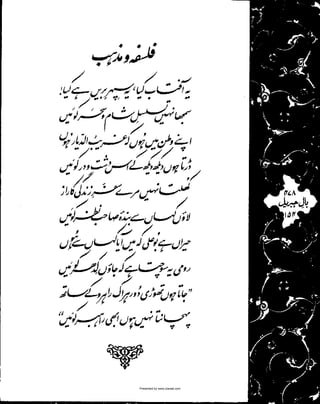 فلسفہ و مذہب
یہ آفتاب کیا، یہ سپہرِ بریں ہے کیا!
سمجھا نہیں تسلسلِ شام و سحر کو میں
اپنے وطن میں ہوں کہ غریب الدیار ہوں
ڈرتا ہوں دیکھ دیکھ کے اس دشت و در کو میں
کھلتا نہیں مرے سفرِ زندگی کا راز
لاؤں کہاں سے بندۂ صاحب نظر کو میں
حیراں ہے بوعلی کہ میں آیا کہاں سے ہوں
رومی یہ سوچتا ہے کہ جاؤں کدھر کو میں
"جاتا ہوں تھوڑی دور ہر اک راہرو کے ساتھ
پہچانتا نہیں ہوں ابھی راہبر کو میں"
۴۷۸
بالِ جبریل
۱۵۴
Presented by www.ziaraat.com